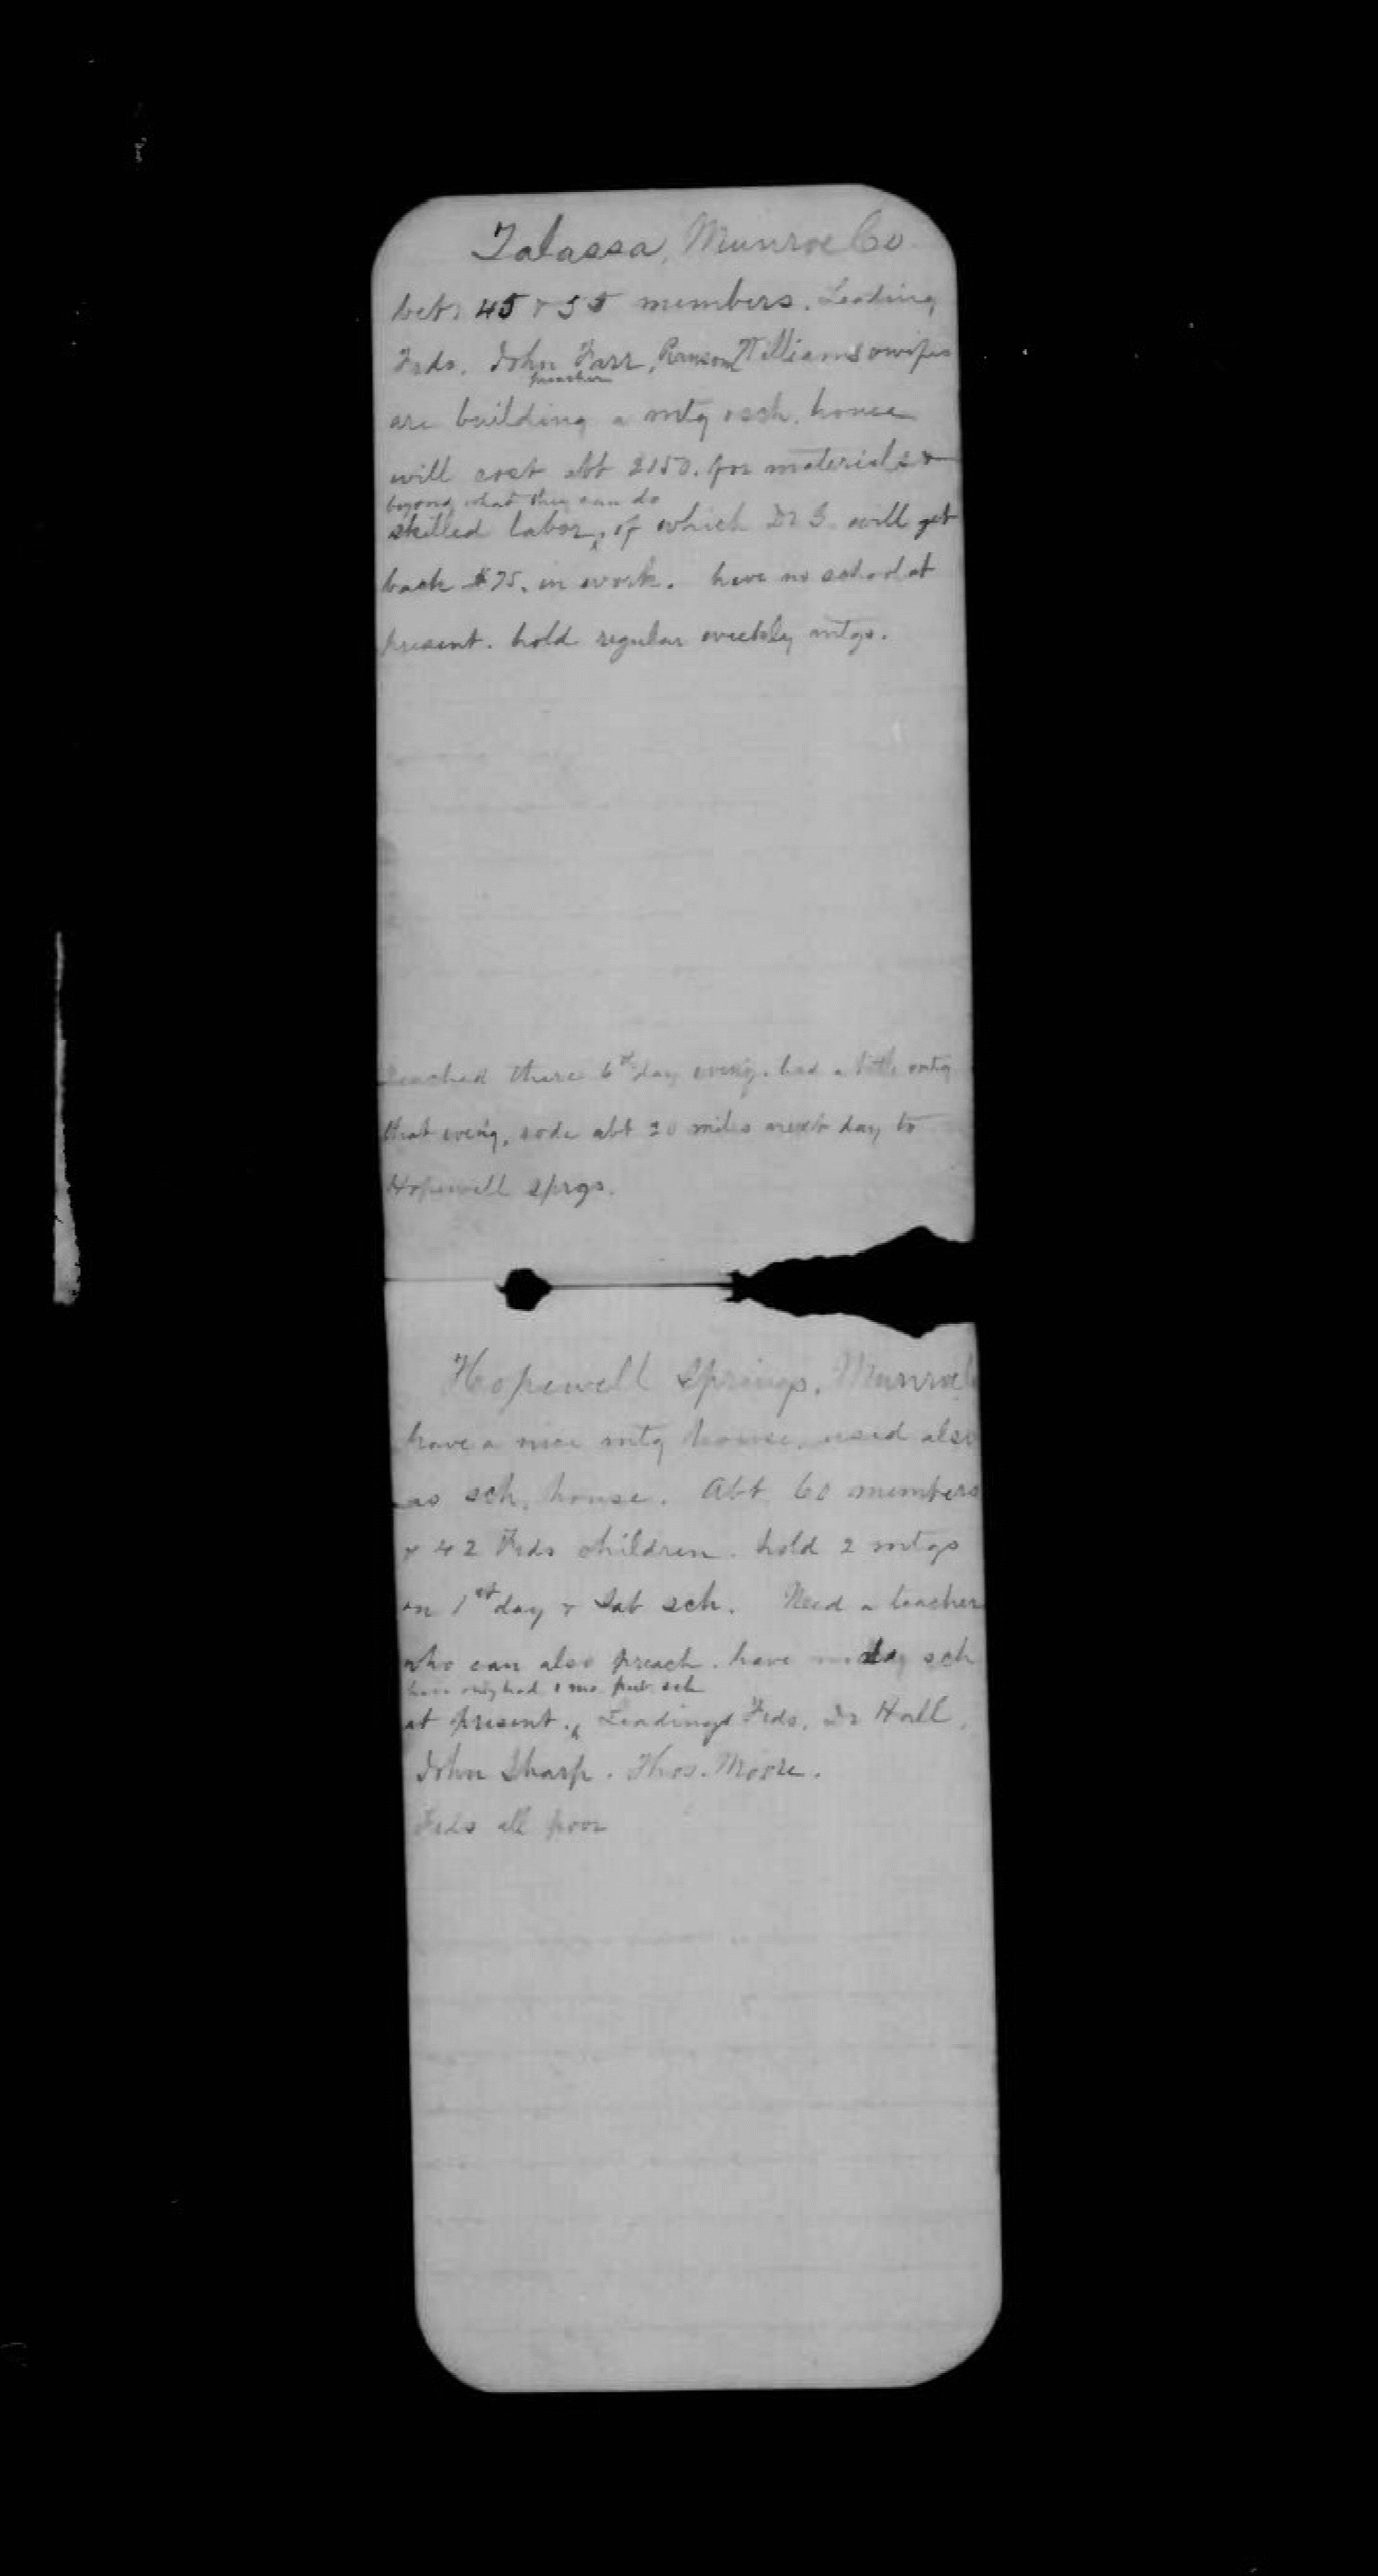 Talassa, Munroe Co.
bet. 45 & 55 members. Leading
Frds. John Farr, Ransom Williams & wife
preacher
are building a mtg & sch. house
will cost abt $150. for materials &
beyond what they can do
skilled labor, of which Dr G. will get
back $75. in work. have no school at
present. hold regular weekly mtgs.
Reached there 6th day eveng. had a little mtg
that eveng, rode abt 20 miles next day to
Hopewell Sprgs.
Hopewell Springs, Munroe
have a nice mtg house, used also
as sch. house. Abt 60 members
& 42 Frds children. hold 2 mtgs
on 1st day & Sab sch. Need a teacher
who can also preach. have no day sch
have only had mo pub. sch
at present. Leading Frds, Dr Hall,
John Sharp. Thos. Moore.
Frds all poor